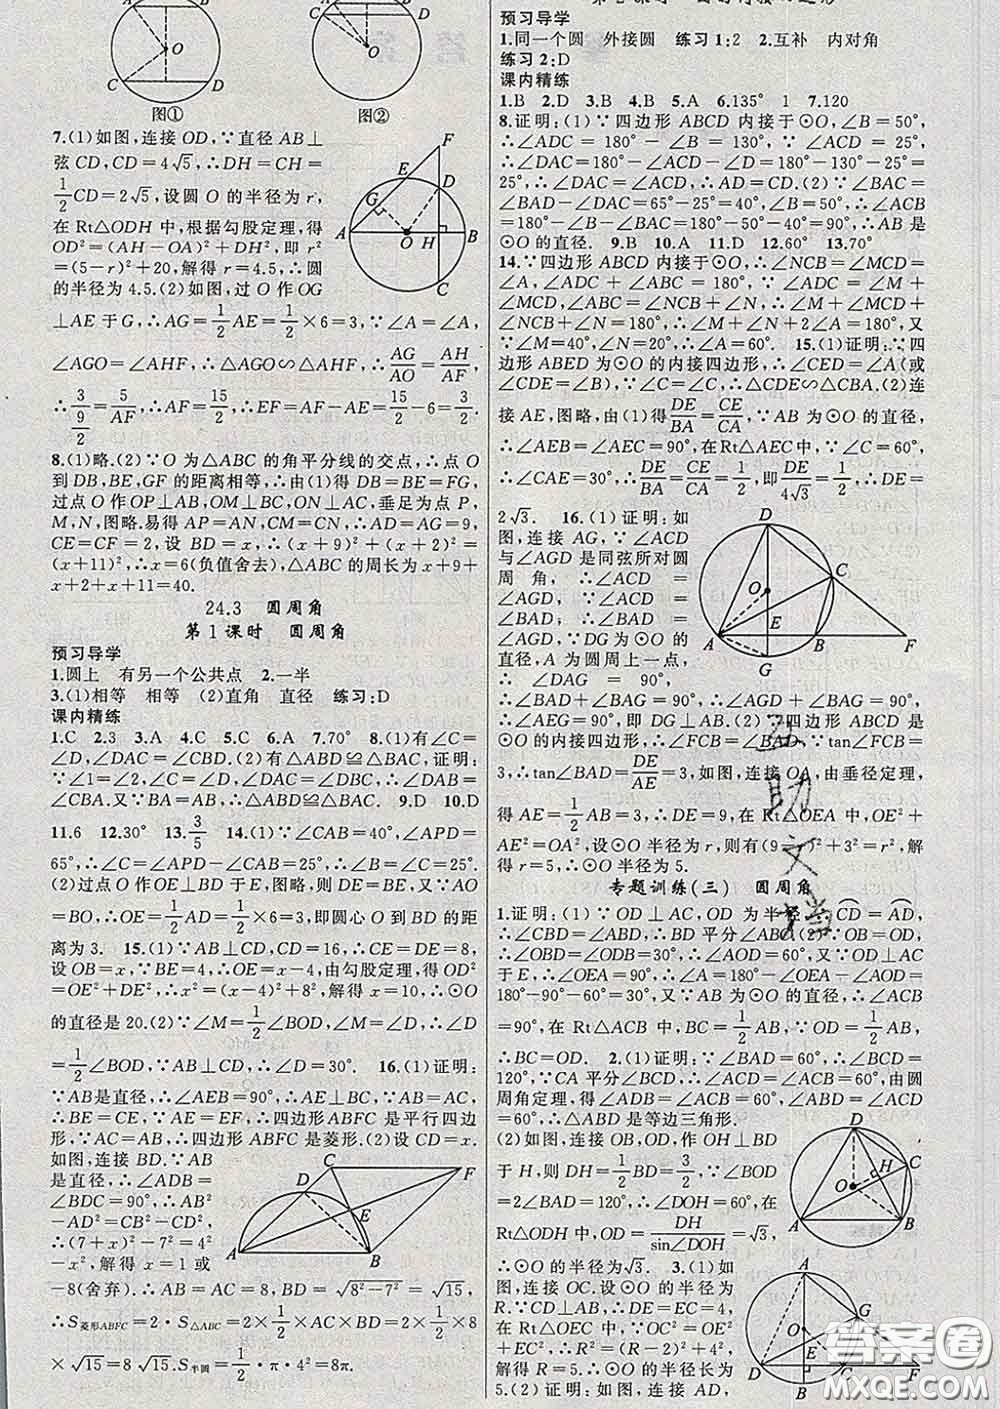 图① 图②
7.(1)如图,连接OD,∵直径AB⊥
弦CD,CD=4√5,∴DH=CH=
1/2CD=2√5,设圆O的半径为r,
在Rt△ODH中,根据勾股定理,得
OD²=(AH-OA)²+DH²,即r²
=(5-r)²+20,解得r=4.5,∴圆
的半径为4.5.(2)如图,过O作OG
⊥AE于G,∴AG=1/2AE=1/2×6=3,∵∠A=∠A,
∠AGO=∠AHF,∴△AGO∽△AHF,∴AG/AO=AH/AF,
∴3/(9/2)=5/AF,∴AF=15/2,∴EF=AF-AE=15/2-6=3/2.
8.(1)略.(2)∵O为△ABC的角平分线的交点,∴点O
到DB,BE,GF的距离相等,∴由(1)得DB=BE=FG,
过点O作OP⊥AB,OM⊥BC,ON⊥AC,垂足为点P,
M,N,图略.易得AP=AN,CM=CN,∴AD=AG=9,
CE=CF=2,设BD=x,∴(x+9)²+(x+2)²=
(x+11)²,∴x=6(负值舍去),∴△ABC的周长为x+9+
x+2+x+11=40.
24.3 圆周角
第1课时 圆周角
预习导学
1.圆上 有另一个公共点 2.一半
3.(1)相等 相等 (2)直角 直径 练习:D
课内精练
1.C 2.3 3.A 4.C 5.C 6.A 7.70° 8.(1)有∠C=
∠D,∠DAC=∠DBC.(2)有△ABD≌△BAC,证明:
∵∠1=∠2,∠DAC=∠DBC,∴∠DAB=
∠CBA.又∵BA=AB,∴△ABD≌△BAC. 9.D 10.D
11.6 12.30° 13.3/5 14.(1)∵∠CAB=40°,∠APD=
65°,∴∠C=∠APD-∠CAB=25°,∴∠B=∠C=25°.
(2)过点O作OE⊥BD于E,图略,则DE=BE,又∵AO=
BO,∴OE=1/2AD=1/2×6=3,即圆心O到BD的距
离为3. 15.(1)∵AB⊥CD,CD=16,∴CE=DE=8,
设OB=x,∵BE=4,∴OE=x-4,由勾股定理,得OD²
=OE²+DE²,∴x²=(x-4)²+8²,解得x=10,∴⊙O
的直径是20.(2)∵∠M=1/2∠BOD,∠M=∠D,∴∠D
=1/2∠BOD,∵AB⊥CD,∴∠D=30°. 16.(1)证明:
∵AB是直径,∴∠AEB=90°,∴AE⊥BC,∵AB=AC,
∴BE=CE,∵AE=EF,∴四边形ABFC是平行四边
形,∵AC=AB,∴四边形ABFC是菱形.(2)设CD=x.
如图,连接BD.∵AB
是直径,∴∠ADB=
∠BDC=90°,∴AB²
-AD²=CB²-CD²,
∴(7+x)²-7²=4²
-x²,解得x=1或
-8(舍弃).∴AC=8,BD=√(8²-7²)=√15,
∴S菱形ABFC=2·S△ABC=2×1/2×AC×BD=2×1/2×8
×√15=8√15.S半圆=1/2·π·4²=8π.
预习导学
1.同一个圆 外接圆 练习1:2 2.互补 内对角
练习2:D
课内精练
1.B 2.D 3.B 4.B 5.A 6.135° 1 7.120
8.证明:(1)∵四边形ABCD内接于⊙O,∠B=50°,
∴∠ADC=180°-∠B=130°,∵∠ACD=25°,
∴∠DAC=180°-∠ADC-∠ACD=180°-130°-25°=
25°,∴∠DAC=∠ACD,∴AD=CD.(2)∵∠BAC=
∠BAD-∠DAC=65°-25°=40°,∠B=50°,∴∠ACB
=180°-∠B-∠BAC=180°-50°-40°=90°,∴AB是
⊙O的直径. 9.B 10.A 11.D 12.60° 13.70°
14.∵四边形ABCD内接于⊙O,∴∠NCB=∠MCD=
∠A,∠ADC+∠ABC=180°,∵∠ADC=∠M+
∠MCD,∠ABC=∠N+∠NCB,∴∠M+∠MCD+
∠NCB+∠N=180°,∴∠M+∠N+2∠A=180°,又
∵∠M=40°,∠N=20°,∴∠A=60°. 15.(1)证明:∵四
边形ABED为⊙O的内接四边形,∴∠CED=∠A(或
∠CDE=∠B),∵∠C=∠C,∴△CDE∽△CBA.(2)连
接AE,图略,由(1)得DE/BA=CE/CA,∵AB为⊙O的直径,
∴∠AEB=∠AEC=90°,在Rt△AEC中,∵∠C=60°,
∴∠CAE=30°,∴DE/BA=CE/CA=1/2,即DE/4√3=1/2,∴DE=
2√3. 16.(1)证明:如
图,连接AG,∵∠ACD
与∠AGD是同弦所对圆
周角,∴∠ACD=
∠AGD,∵∠ACD=
∠BAD,∴∠BAD=
∠AGD,∵DG为⊙O的
直径,A为圆周上一点,
∴∠DAG=90°,
∴∠BAD+∠BAG=90°,∴∠AGD+∠BAG=90°,
∴∠AEG=90°,即DG⊥AB.(2)∵四边形ABCD是
⊙O的内接四边形,∴∠FCB=∠BAD,∵tan∠FCB=
3,∴tan∠BAD=DE/AE=3,如图,连接OA,由垂径定理,
得AE=1/2AB=3,∴DE=9,在Rt△OEA中,OE²+
AE²=OA²,设⊙O半径为r,则有(9-r)²+3²=r²,解
得r=5,∴⊙O半径为5.
专题训练(三) 圆周角
1.证明:(1)∵OD⊥AC,OD为半径,∴CD=AD,
∴∠CBD=∠ABD,∴BD平分∠ABC.(2)∵OB=OD,
∴∠OBD=∠ODB=30°,∴∠AOD=60°,又∵OD⊥AC
于E,∴∠OEA=90°,∴∠A=180°-∠OEA-∠AOD=
180°-90°-60°=30°,又∵AB为⊙O的直径,∴∠ACB
=90°,在Rt△ACB中,BC=1/2AB,∵OD=1/2AB,
∴BC=OD. 2.(1)证明:∵∠BAD=60°,∴∠BCD=
120°,∵CA平分∠BCD,∴∠ACD=∠ACB=60°,由圆
周角定理,得∠ABD=∠ACD=60°,∠ADB=∠ACD
=60°,∴△ABD是等边三角形.
(2)如图,连接OB,OD,作OH⊥BD
于H,则DH=1/2BD=3/2,∵∠BOD
=2∠BAD=120°,∴∠DOH=60°,在
Rt△ODH中,OD=DH/sin∠DOH=√3,
∴⊙O的半径为√3. 3.(1)如
图,连接OC.设⊙O的半径为
R.∵CD⊥AB,∴DE=EC=4,
在Rt△OEC中,∵OC²=OE²
+EC²,∴R²=(R-2)²+4²,
解得R=5.∴⊙O的半径长为
5.(2)证明:如图,连接AD,
答案圈
MXQE.COM